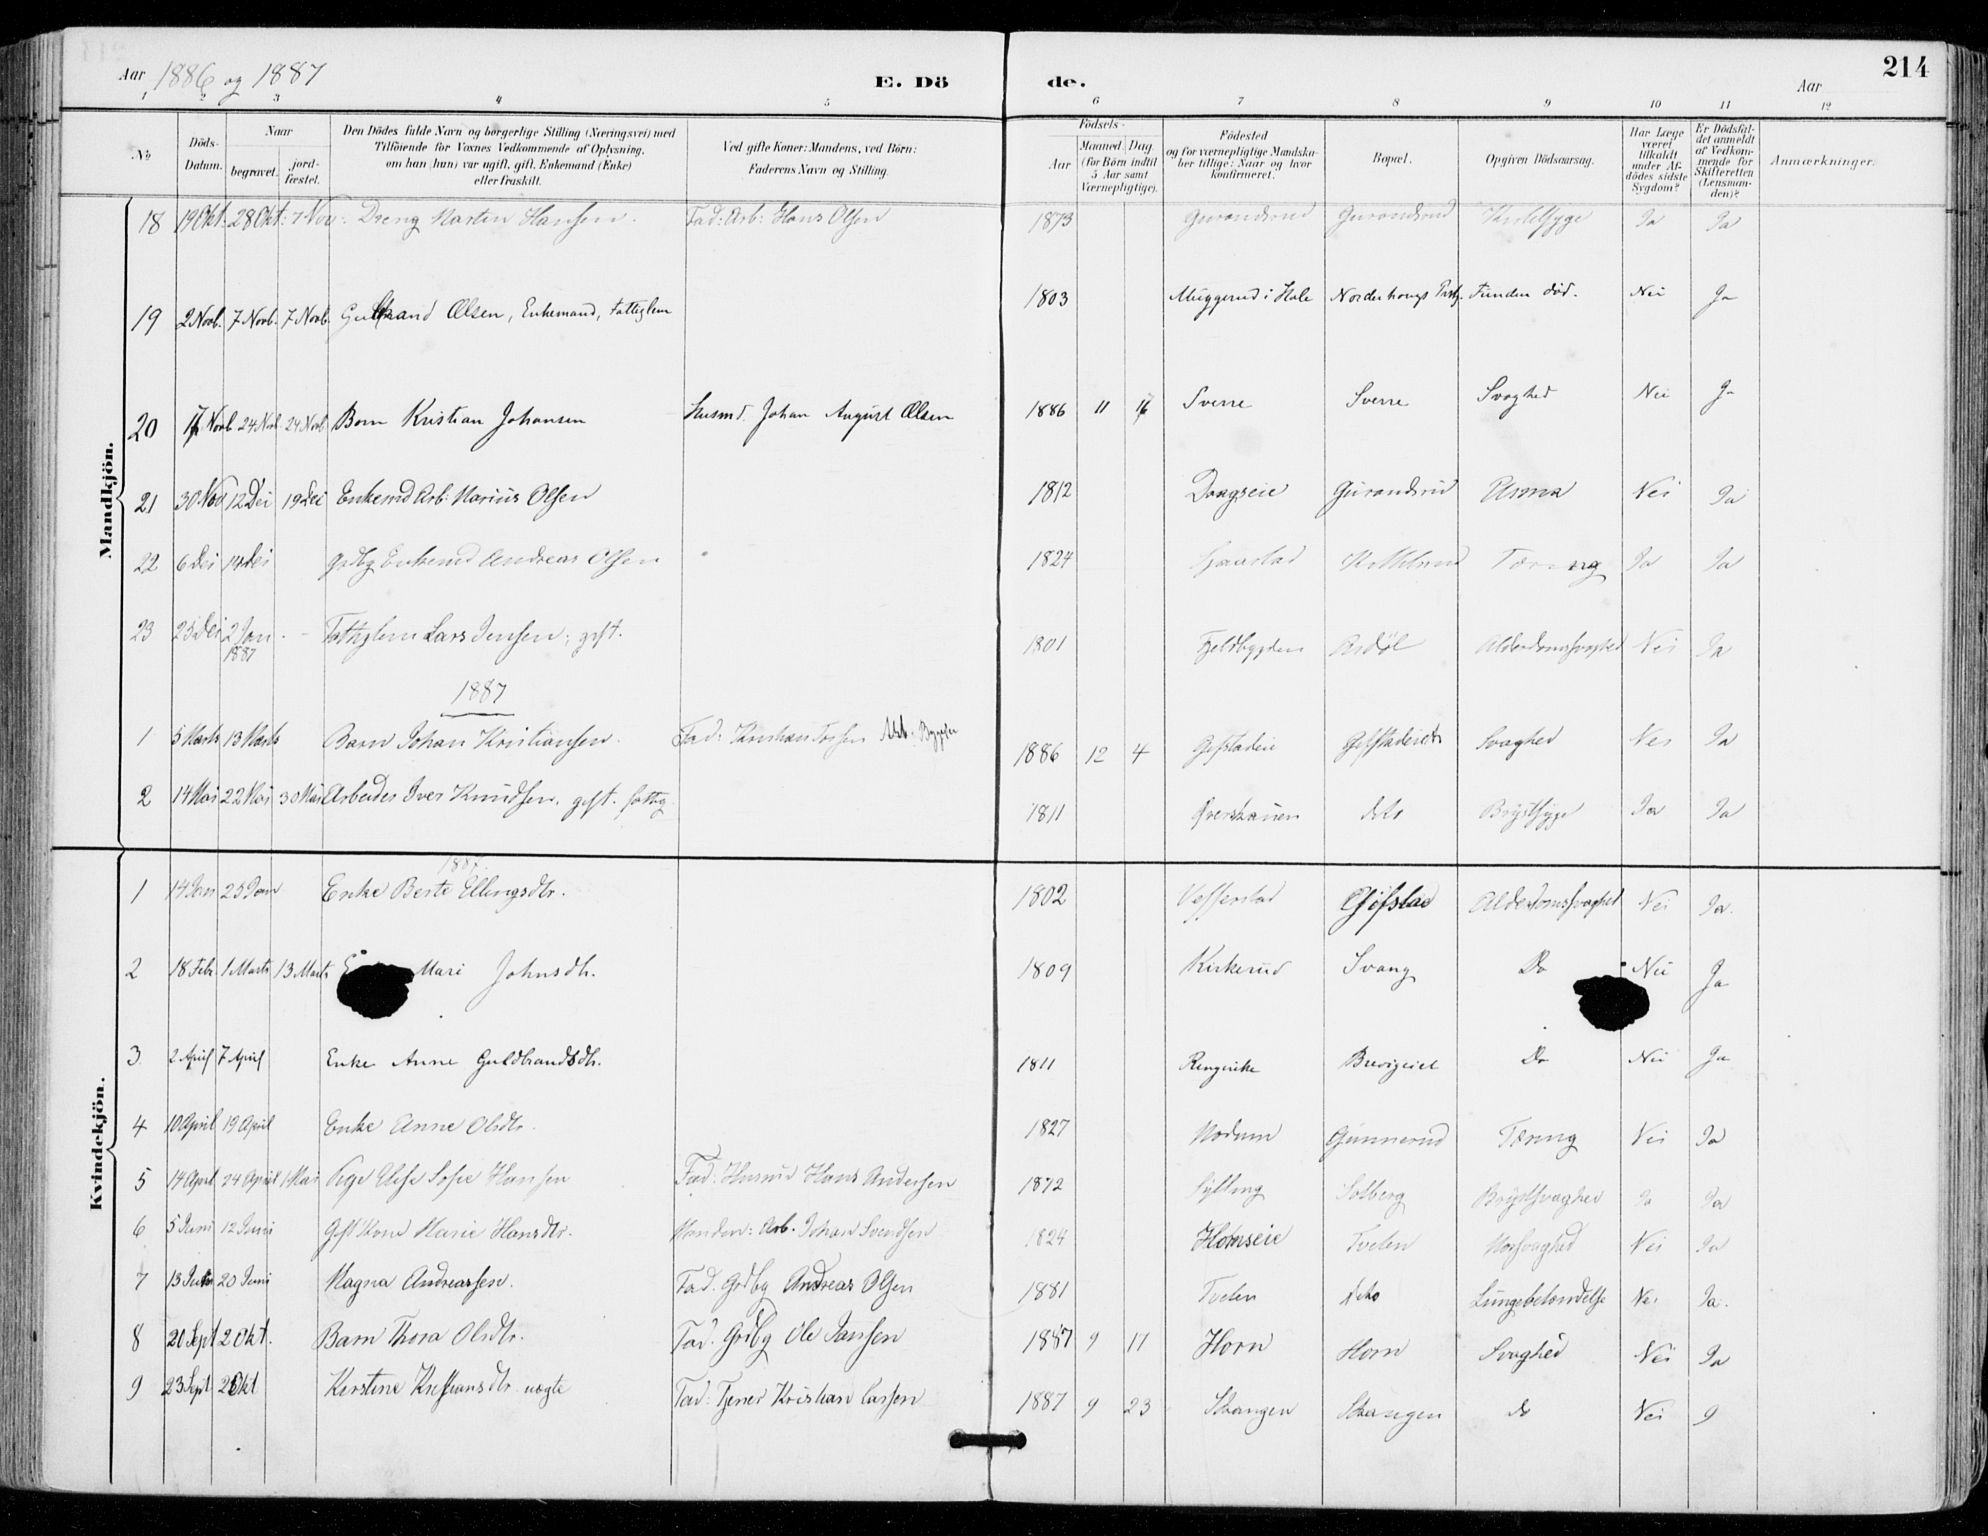 214
Aar 1886 og 1887 E. Dö de. Aar
1 2 3 4 5 6 7 8 9 10 11 12
No Döds-Datum. Naar begravet. jordfæstet. Den Dödes fulde Navn og borgerlige Stilling (Næringsvei) med Tilföiende for Voxnes Vedkommende af Oplysning, om han (hun) var ugift, gift, Enkemand (Enke) eller fraskilt. Ved gifte Koner: Mandens, ved Börn: Faderens Navn og Stilling. Födsels- Aar Maaned. Dag. (for Börn indtil 5 Aar samt Værnepligtige). Födested og for værnepligtige Mandskaber tillige: Naar og hvor konfirmeret. Bopæl. Opgiven Dödsaarsag. Har Læge været tilkaldt under Afdödes sidste Sygdom? Er Dödsfaldet anmeldt af Vedkommende for Skifteretten (Lensmanden)? Anmærkninger.
Mandkjön.
18 19 Okt. 28 Okt: 7 Nov: Dreng Martin Hansen. Fad: Arb: Hans Olsen 1873 Gurandsrud Gurandsrud Ja Ja
19 2 Novb. 7 Novb. 7 Novb. Gulbrand Olsen, Enkemand, Fattiglem 1803 Muggerud i Hole Norderhougs Prstg. Funden død. Nei Ja
20 17 Novb. 24 Novb. 24 Novb. Barn Kristian Johansen Husmd. Johan August Olsen 1886 11 16 Sverre Sverre Svaghed Nei Ja
21 30 Nov 12 Dec 19 Dec Enkemd Arb: Marius Olsen 1812 Gurandsrud Asma Nei Ja
22 6 Dec 14 Dec Grdbg Enkemd Andreas Olsen 1824 Tæring Ja Ja
23 25 Dec 2 Jan 1887 - Fattiglem Lars Jensen, gift. 1801 Fjeldbygden Alderdomssvaghed Nei Ja
1887
1 5 Marts 13 Marts Barn Johan Kristiansen. Fad: Kristian 1886 12 4 Gifstadeie Gifstadeiet Svaghed Nei Ja
2 14 Mai 22 Mai 30 Mai Arbeider Iver Knudsen, gift. fattig. 1811 Øverskauen dito Brystsyge Ja Ja
Kvindekjön.
1887.
1 14 Jan 25 Jan Enke Berte Ellingsdtr. 1802 Gifstad Alderdomssvaghed Nei Ja.
2 18 Febr. 1 Marts 13 Marts Mari Johnsdtr. 1809 Kirkerud Svang Do Nei Ja
3 2 April 7 April Enke Anne Guldbrandsdtr. 1811 Ringerike Do Nei Ja
4 10 April 19 April Enke Anne Olsdtr. 1827 Modum Gunnerud Tæring Nei Ja
5 14 April 24 April 1 Mai Pige Else Sofie Hansen Fad. Husmd Hans Andersen 1872 Sylling Solberg Brystsvaghed Ja Ja
6 5 Juni 12 Juni Gift Kone Marie Hansdtr. Manden: Arb. Johan Svendsen 1824 Hornseie Tveten Nei Ja
7 13 Juni 20 Juni Magna Andreassen. Fad. Grdbg Andreas Olsen 1881 Tveten dito Lungebetændelse Nei Ja.
8 20 Sept 2 Okt. Barn Thora Olsdtr. Fad. Grdbg Ole Jansen 1887 9 17 Horn Horn Svaghed Nei Ja
9 23 Sept 2 Okt Kirstine Kristiansdtr. uægte Fad: Tjener Kristian Larsen 1887 9 23 Skangen Skangen do Nei